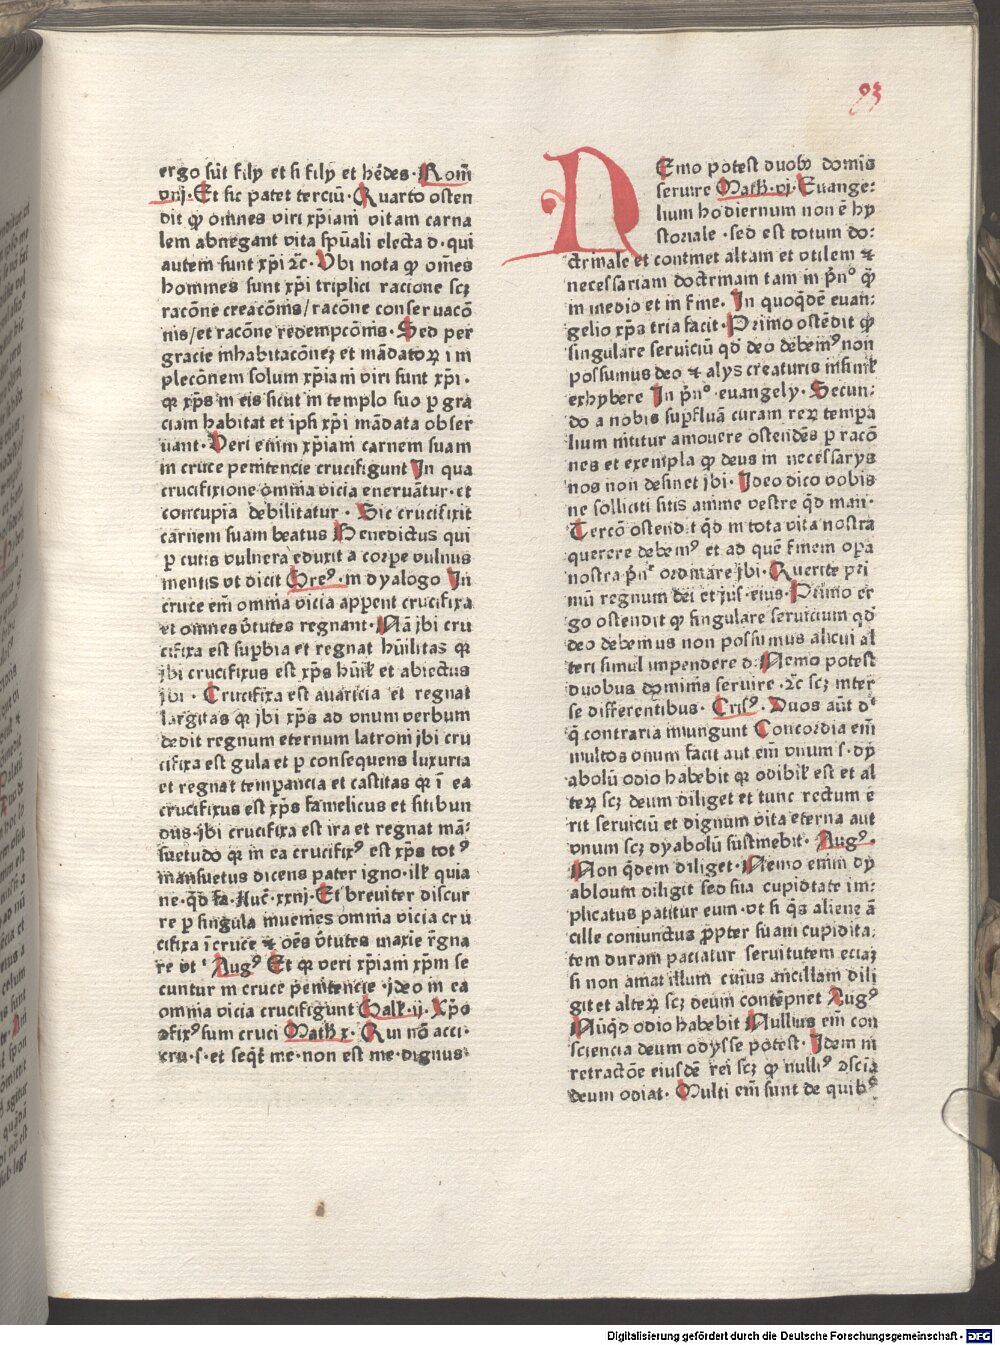 93
ergo sūt filij et si filij et hēdes. Rom̄
viij. Et sic patet terciū. Quarto osten
dit ꝙ omnes viri xp̄iani vitam carna
lem abnegant vita sp̄uali electa d. qui
autem sunt xp̄i ⁊c. Ubi nota ꝙ om̄es
homines sunt xp̄i triplici racione scꝫ
racōne creacōnis/ racōne conseruacō
nis/ et racōne redempcōnis. Sed per
gracie inhabitacōneꝫ et mādatoꝝ im
plecōnem solum xp̄iani viri sunt xp̄i.
qꝛ xp̄s in eis sicut in templo suo p gra
ciam habitat et ipsi xp̄i mādata obser
uant. Veri enim xp̄iani carnem suam
in cruce penitencie crucifigunt In qua
crucifixione omnia vicia eneruātur. et
concupīa debilitatur. Sic crucifixit
carnem suam beatus Benedictus qui
p cutis vulnera eduxit a corpe vulnus
mentis vt dicit Greꝰ. in dyalogo In
cruce em̄ omnia vicia appent crucifixa
et omnes v̄tutes regnant. Nā jbi cru
cifixa est supbia et regnat hūilitas qꝛ
jbi crucifixus est xp̄s hūil̄ et abiectus
jbi. Crucifixa est auaricia et regnat
largitas qꝛ jbi xp̄s ad vnum verbum
dedit regnum eternum latroni jbi cru
cifixa est gula et p consequens luxuria
et regnat temperancia et castitas qꝛ ī ea
crucifixus est xp̄s famelicus et sitibun
dus. jbi crucifixa est ira et regnat mā⸗
suetudo qꝛ in ea crucifixꝰ est xp̄s totꝰ
mansuetus dicens pater igno. ill̄ quia
ne. q̄d fa. Luc̄. xxiij. Et breuiter discur
re p singula inuenies omnia vicia cru
cifixa ī cruce ⁊ oēs v̄tutes maxīe r̄gna
re vt Augꝰ Et qꝛ veri xp̄iani xp̄m se
cuntur in cruce penitencie. jdeo in ea
omnia vicia crucifigunt Gal̄. ij. Xp̄o
ꝯfixꝰ sum cruci Math̄ x. Qui nō acci.
cru. s. et seqt̄ me. non est me dignus.
NEmo potest duobꝰ domīs
seruire Math̄. vi. Euange⸗
lium hodiernum non ē hy
storiale. sed est totum do⸗
ctrinale et continet altam et vtilem ⁊
necessariam doctrinam tam in p̄nº ꝙ̄
in medio et in fine. In quoq̄dē euan⸗
gelio xp̄s tria facit. Primo ostēdit ꝙ
singulare seruiciū qd̄ deo debemꝰ non
possumus deo ⁊ alijs creaturis insimil̄
exhybere In p̄nº. euangelij. Secun⸗
do a nobis supfluā curam reꝝ tempa
lium nititur amouere ostendēs p racō
nes et exempla ꝙ deus in necessarijs
nos non desinet jbi. Ideo dico vobis
ne solliciti sitis anime vestre q̄d man.
Tercō ostendit q̄d in tota vita nostra
querere debemꝰ et ad quē finem opa
nostra ordinare jbi. Querite pri
mū regnum dei et jus. eius. Primo er
go ostendit ꝙ singulare seruicium qd̄
deo debemus non possumus alicui al
teri simul impendere d. Nemo potest
duobus dominis seruire. ⁊c scꝫ inter
se differentibus. Crisꝰ. Duos aūt dᵗ
q̄ contraria iniungunt Concordia em̄
multos vnum facit aut em̄ vnum s. dy
abolū odio habebit qꝛ odibil̄ est et al
teꝝ scꝫ deum diliget et tunc rectum e
rit seruiciū et dignum vita eterna aut
vnum scꝫ dyabolū sustinebit. Augꝰ.
Non q̄dem diliget. Nemo enim dy
abloum diligit sed sua cupiditate im⸗
plicatus patitur eum. vt si q̄s aliene ā
cille coniunctus ꝓpter suam cupidita⸗
tem duram paciatur seruitutem eciaꝫ
si non amat illum cuius ancillam dili
git et alteꝝ scꝫ deum contēpnet Augꝰ
Nūq̄d odio habebit Nullius em̄ con
sciencia deum odysse potest. Idem in
retractōe eiusdē rei scꝫ ꝙ nulliꝰ ꝯscīa
deum odiat. Multi em̄ sunt de quibꝰ
Digitalisierung gefördert durch die Deutsche Forschungsgemeinschaft - DFG